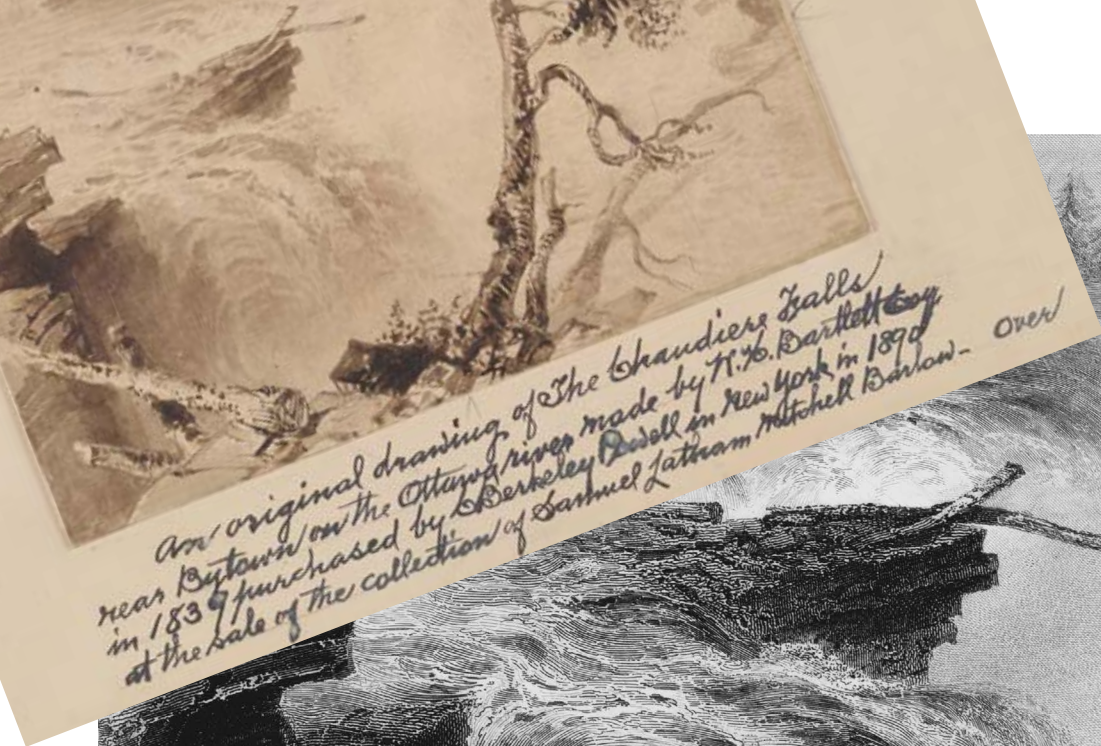 An original drawing of The Chaudiere Falls
near Bytown on the Ottawa river made by W. H. Bartlett Esq.
in 1839 purchased by Berkeley Powell in New York in 1890
at the sale of the collection of Samuel Latham Mitchell Barlow-
Over